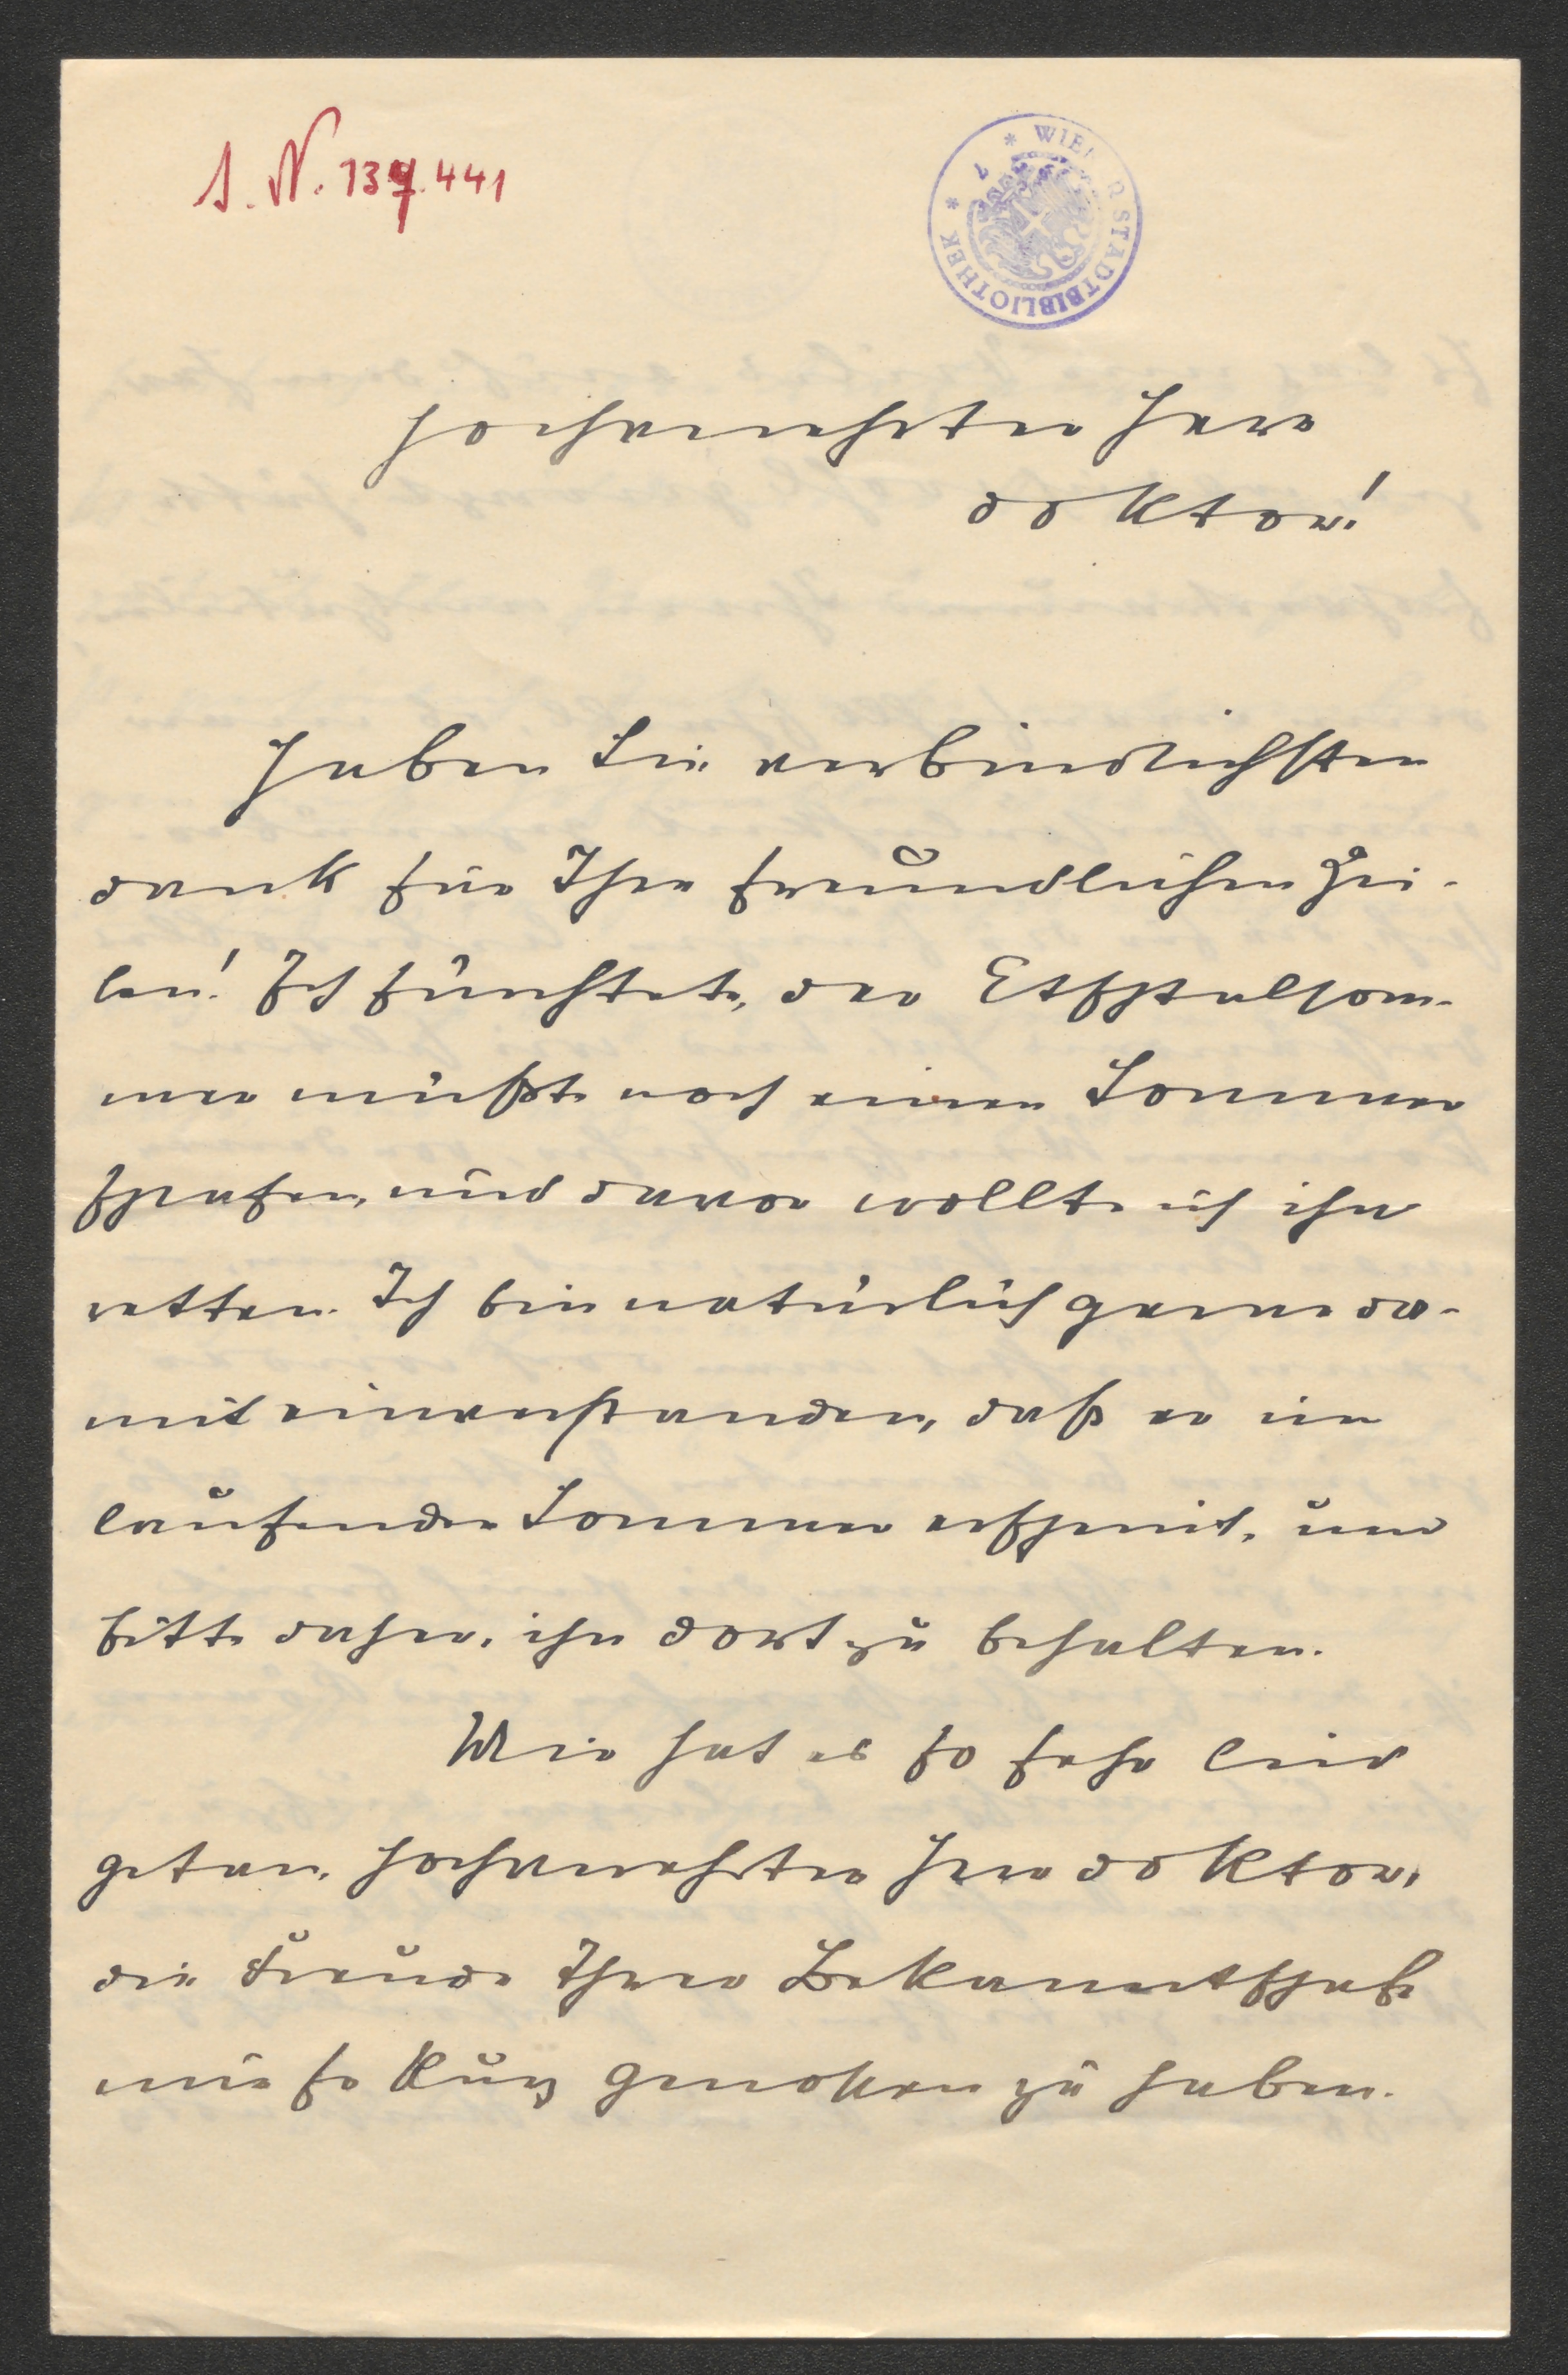 I. N. 137.441
* WIENER STADTBIBLIOTHEK *
Hochverehrter Herr
Doktor!
Haben Sie verbindlichsten
Dank für Ihre freundlichen Zei-
len! Ich fürchtete, der Etschtalsom-
mer müßte noch einen Sommer
schlafen, und davor wollte ich ihn
retten. Ich bin natürlich gerne da-
mit einverstanden, daß er im
laufenden Sommer erscheint, und
bitte daher, ihn dort zu behalten.
Mir hat es so sehr leid
getan, hochverehrter Herr Doktor,
die Freude Ihrer Bekanntschaft
nur so kurz genossen zu haben.